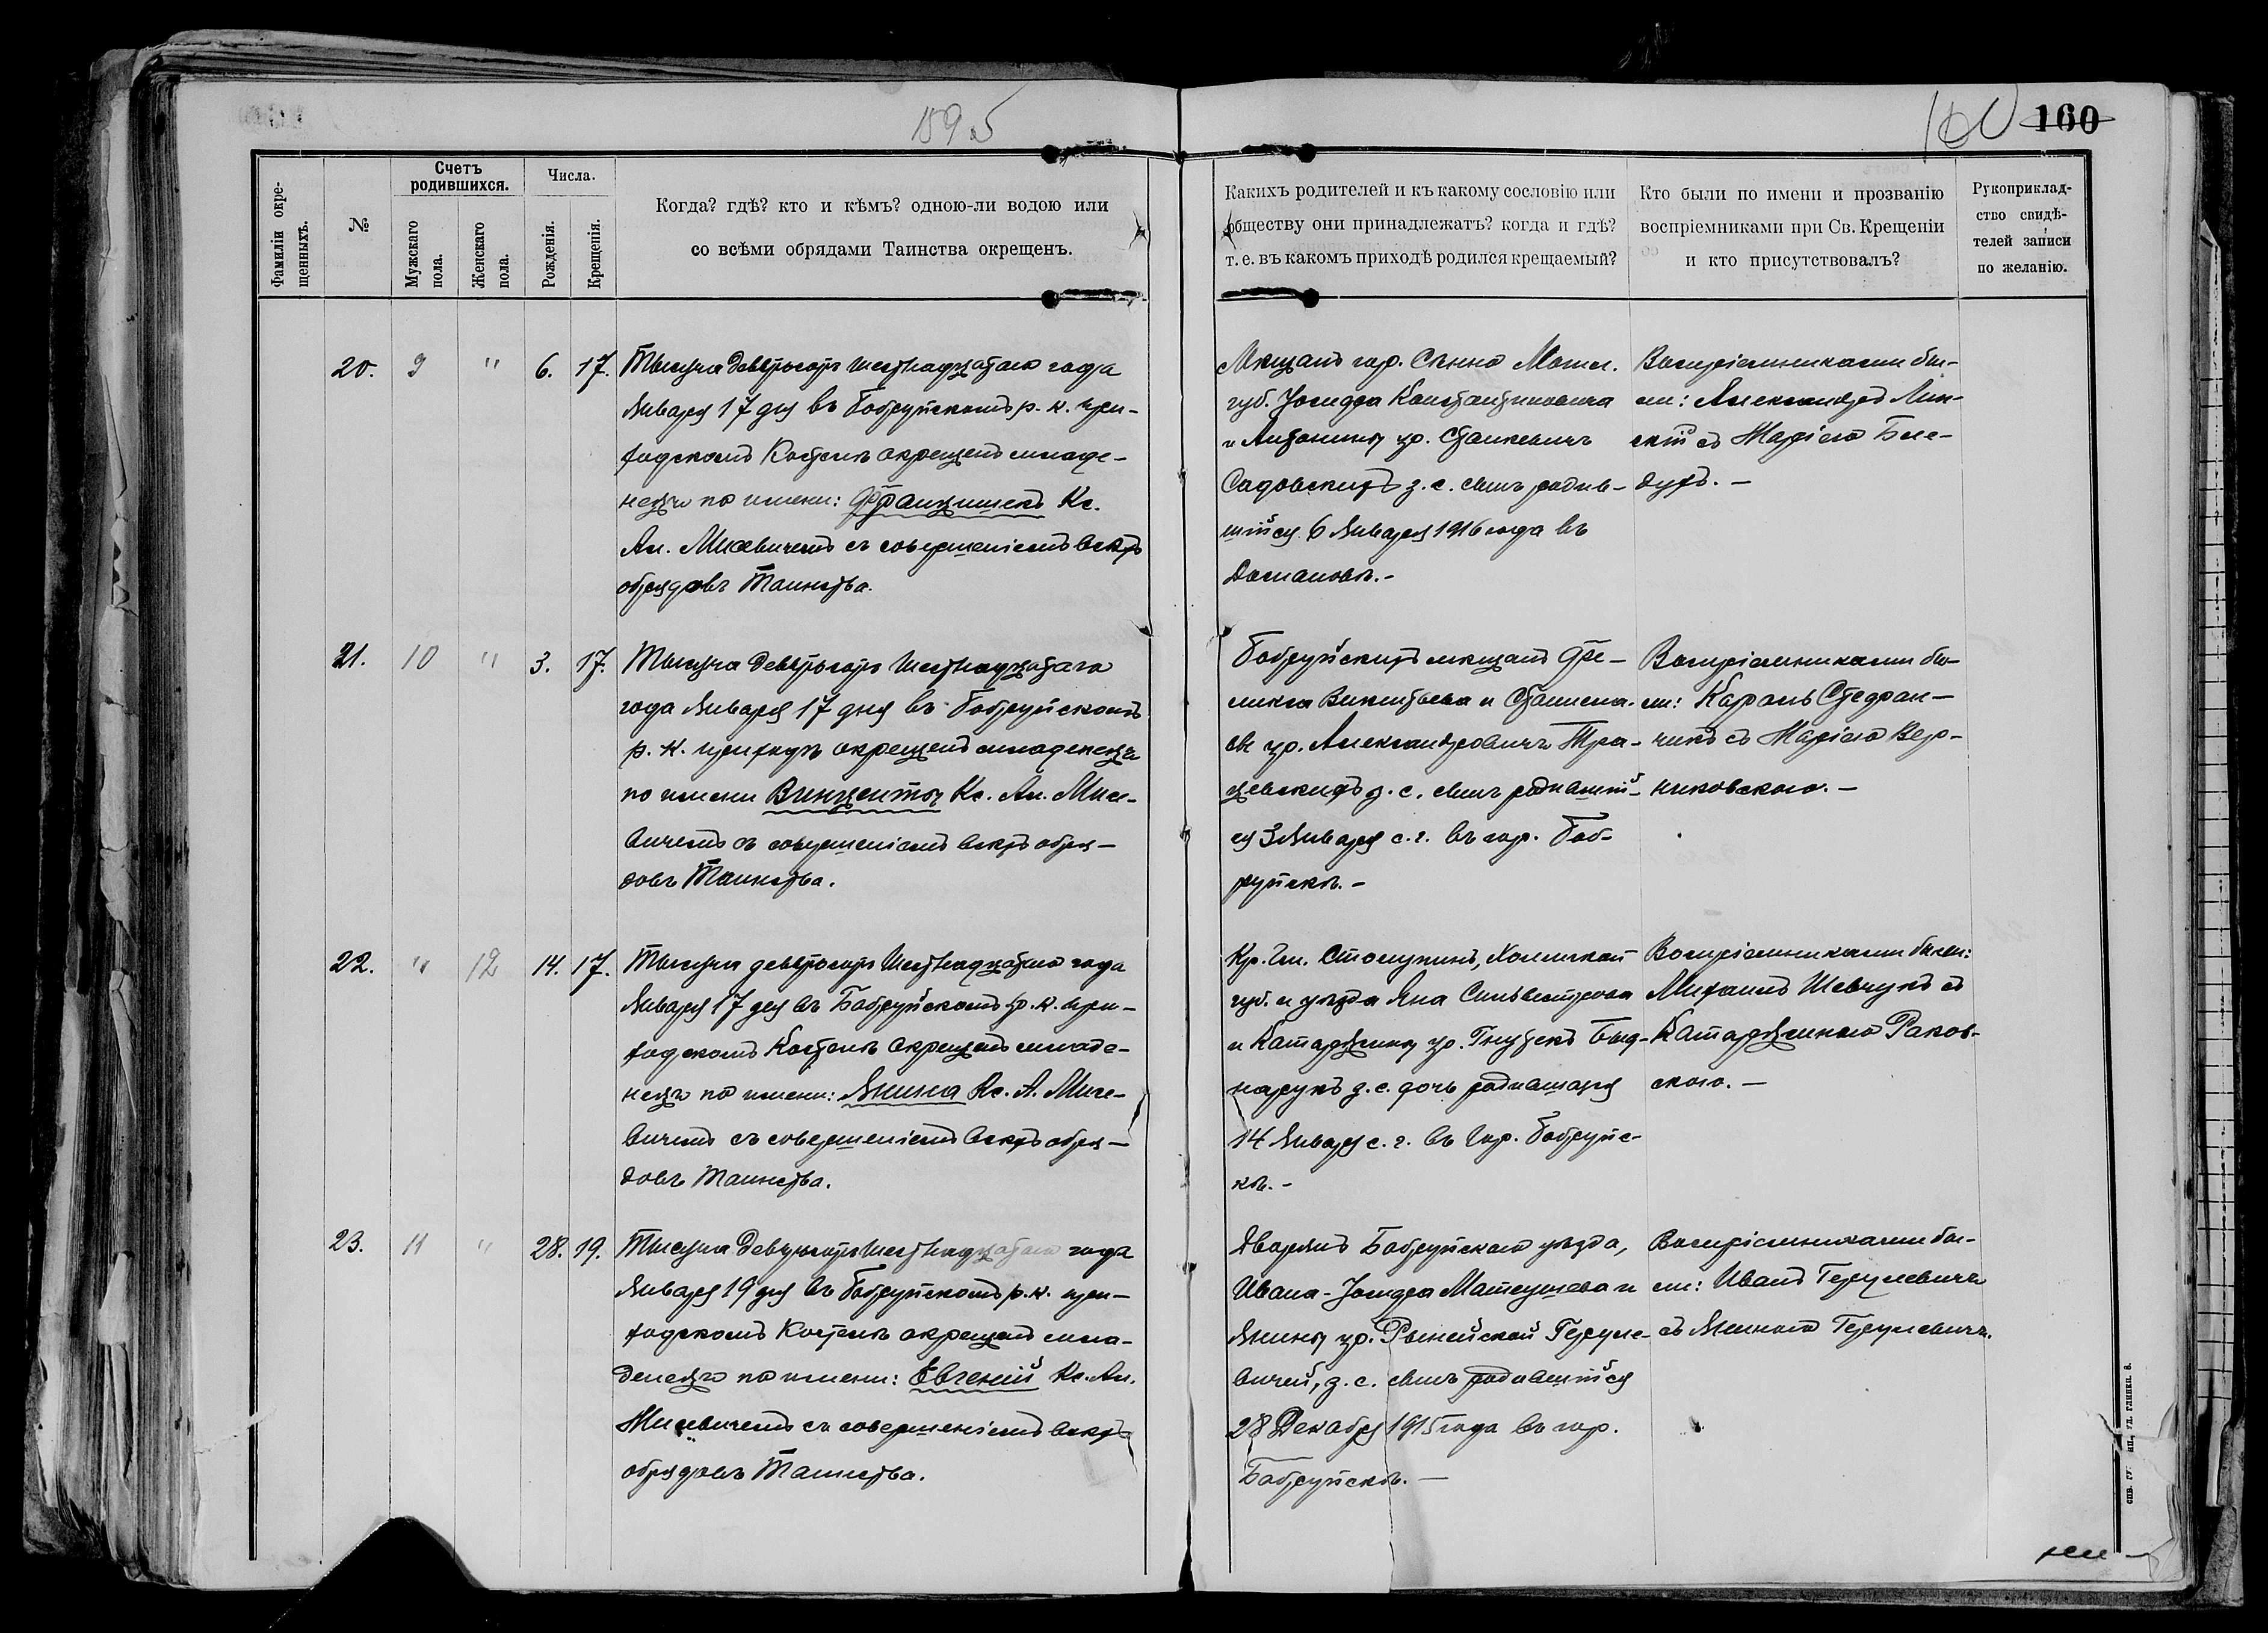 159 об
160 160
Фамиліи окре-
щенныхъ.
№
Счетъ
родившихся.
Мужскаго
пола.
Женскаго
пола.
Числа.
Рожденія.
Крещенія.
Когда? гдѣ? кто и кѣмъ? одною-ли водою или
со всѣми обрядами Таинства окрещенъ.
Какихъ родителей и къ какому сословію или
обществу они принадлежатъ? когда и гдѣ?
т. е. въ какомъ приходѣ родился крещаемый?
Кто были по имени и прозванію
воспріемниками при Св. Крещеніи
и кто присутствовалъ?
Рукоприклад-
ство свидѣ-
телей записи
по желанію.
20. 9 " 6. 17.
Тысяча девятьсотъ шестнадцатаго года
Января 17 дня въ Бобруйскомъ р. к. при-
ходскомъ Костелѣ окрещенъ младе-
нецъ по имени: Францишекъ Кс.
Ал. Мисевичемъ съ совершеніемъ всѣхъ
обрядовъ Таинства.
Мѣщанъ гор. Сѣнно Могил.
губ. Іосифа Константиновича
и Антонины ур. Станкевичъ
Садовскихъ з. с. сынъ родив-
шійся 6 Января 1916 года въ
Воспріемниками бы-
ли: Александръ Лин-
скій съ Маріею
21. 10 " 3. 17.
Тысяча девятьсотъ Шестнадцатаго
года Января 17 дня въ Бобруйскомъ
р. к. приходѣ окрещенъ младенецъ
по имени Винцентый Кс. Ал. Мисе-
вичемъ съ совершеніемъ всѣхъ обря-
довъ Таинства.
Бобруйскихъ мѣщанъ Фе-
ликса Викентьева и Станисла-
вы ур. Александровичъ Тра-
цевскихъ з. с. сынъ родившій-
ся 3 Января с. г. въ гор. Боб-
руйскѣ. -
Воспріемниками бы-
ли: Кароль Стефан-
чикъ съ Маріею Вер-
никовскою. -
22. " 12 14. 17.
Тысяча девятьсотъ Шестнадцатаго года
Января 17 дня въ Бобруйскомъ р. к. при-
ходскомъ Костелѣ окрещенъ младе-
нецъ по имени: Янина Кс. А. Мисе-
вичемъ съ совершеніемъ всѣхъ обря-
довъ Таинства.
Кр. гм. Столпинъ, Холмской
губ. и уѣзда Яна Сильвестрова
и Катаржины ур. Гнутекъ Бед-
нарукъ з. с. дочь родившаяся
14 Января с. г. въ гор. Бобруйс-
кѣ. -
Воспріемниками были:
Михаилъ Шевчукъ съ
Катаржиною Раков-
скою. -
23. 11 " 28. 19.
Тысяча девятьсотъ шестнадцатаго года
Января 19 дня въ Бобруйскомъ р. к. при-
ходскомъ Костелѣ окрещенъ мла-
денецъ по имени: Евгеній Кс. Ал.
Мисевичемъ съ совершеніемъ всѣхъ
обрядовъ Таинства.
Дворянъ Бобруйскаго уѣзда,
Ивана-Іосифа Матеушева и
Янины ур. Рынейской Герцле-
вичей, з. с. сынъ родившійся
28 Декабря 1915 года въ гор.
Бобруйскѣ. -
Воспріемниками бы-
ли: Иванъ
съ Яниною